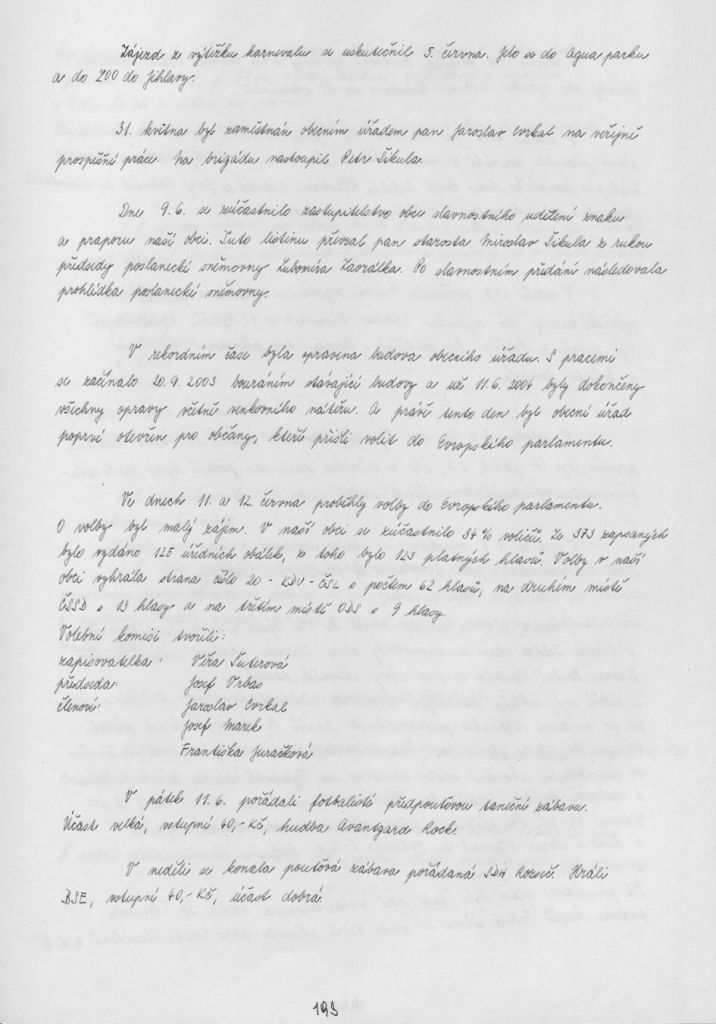 Zájezd z výtěžku karnevalu se uskutečnil 5. června. Jelo se do Aqua parku
a do ZOO do Jihlavy.
31. května byl zaměstnán obecním úřadem pan Jaroslav Cvrkal na veřejně
prospěšné práce. Na brigádu nastoupil Petr Šikula.
Dne 9.6. se zúčastnilo zastupitelstvo obce slavnostního udělení znaku
a praporu naší obci. Tuto listinu převzal pan starosta Miroslav Šikula z rukou
předsedy poslanecké sněmovny Lubomíra Zaorálka. Po slavnostním předání následovala
prohlídka poslanecké sněmovny.
V rekordním čase byla opravena budova obecního úřadu. S pracemi
se začínalo 20.9.2003 bouráním stávající budovy a už 11.6.2004 byly dokončeny
všechny opravy včetně venkovního nátěru. A právě tento den byl obecní úřad
poprvé otevřen pro občany, kteří přišli volit do Evropského parlamentu.
Ve dnech 11. a 12. června proběhly volby do Evropského parlamentu.
O volby byl malý zájem. V naší obci se zúčastnilo 34% voličů. Ze 373 zapsaných
bylo vydáno 125 úředních obálek, z toho bylo 123 platných hlasů. Volby v naší
obci vyhrála strana číslo 20 - KDU - ČSL s počtem 62 hlasů, na druhém místě
ČSSD s 13 hlasy a na třetím místě ODS s 9 hlasy.
Volební komisi tvořili:
zapisovatelka: Věra Šuterová
předseda: Josef Vrbas
členové: Jaroslav Cvrkal
Josef Marek
Františka Juračková
V pátek 11.6. pořádali fotbalisté předpouťovou taneční zábavu.
Účast velká, vstupné 40,- Kč, hudba Avantgard Rock.
V neděli se konala pouťová zábava pořádaná SDH Rozseč. Hráli
BSE, vstupné 40,- Kč, účast dobrá.
193